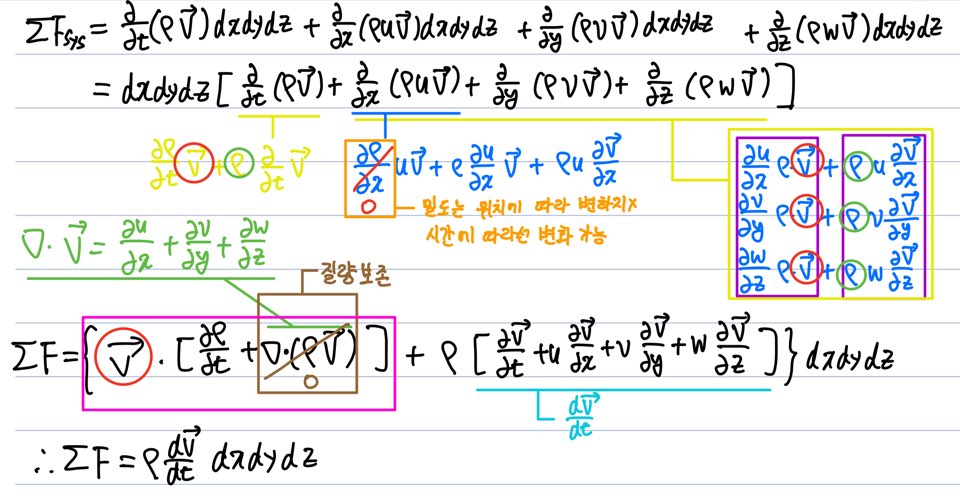 ΣF_sys = ∂/∂t(ρV⃗)dxdydz + ∂/∂x(ρuV⃗)dxdydz + ∂/∂y(ρvV⃗)dxdydz + ∂/∂z(ρwV⃗)dxdydz
= dxdydz[∂/∂t(ρV⃗) + ∂/∂x(ρuV⃗) + ∂/∂y(ρvV⃗) + ∂/∂z(ρwV⃗)]
∂ρ/∂t V⃗ + ρ ∂/∂t V⃗
∂ρ/∂x uV⃗ + ρ ∂u/∂x V⃗ + ρu ∂V⃗/∂x
0
밀도는 위치에 따라 변하지x
시간에 따라선 변화 가능
∂u/∂x ρ·V⃗ + ρ u ∂V⃗/∂x
∂v/∂y ρ·V⃗ + ρ v ∂V⃗/∂y
∂w/∂z ρ·V⃗ + ρ w ∂V⃗/∂z
∇·V⃗ = ∂u/∂x + ∂v/∂y + ∂w/∂z
질량보존
ΣF = {V⃗·[∂ρ/∂t + ∇·(ρV⃗)] + ρ[∂V⃗/∂t + u ∂V⃗/∂x + v ∂V⃗/∂y + w ∂V⃗/∂z]}dxdydz
0
dV⃗/dt
∴ ΣF = ρ dV⃗/dt dxdydz